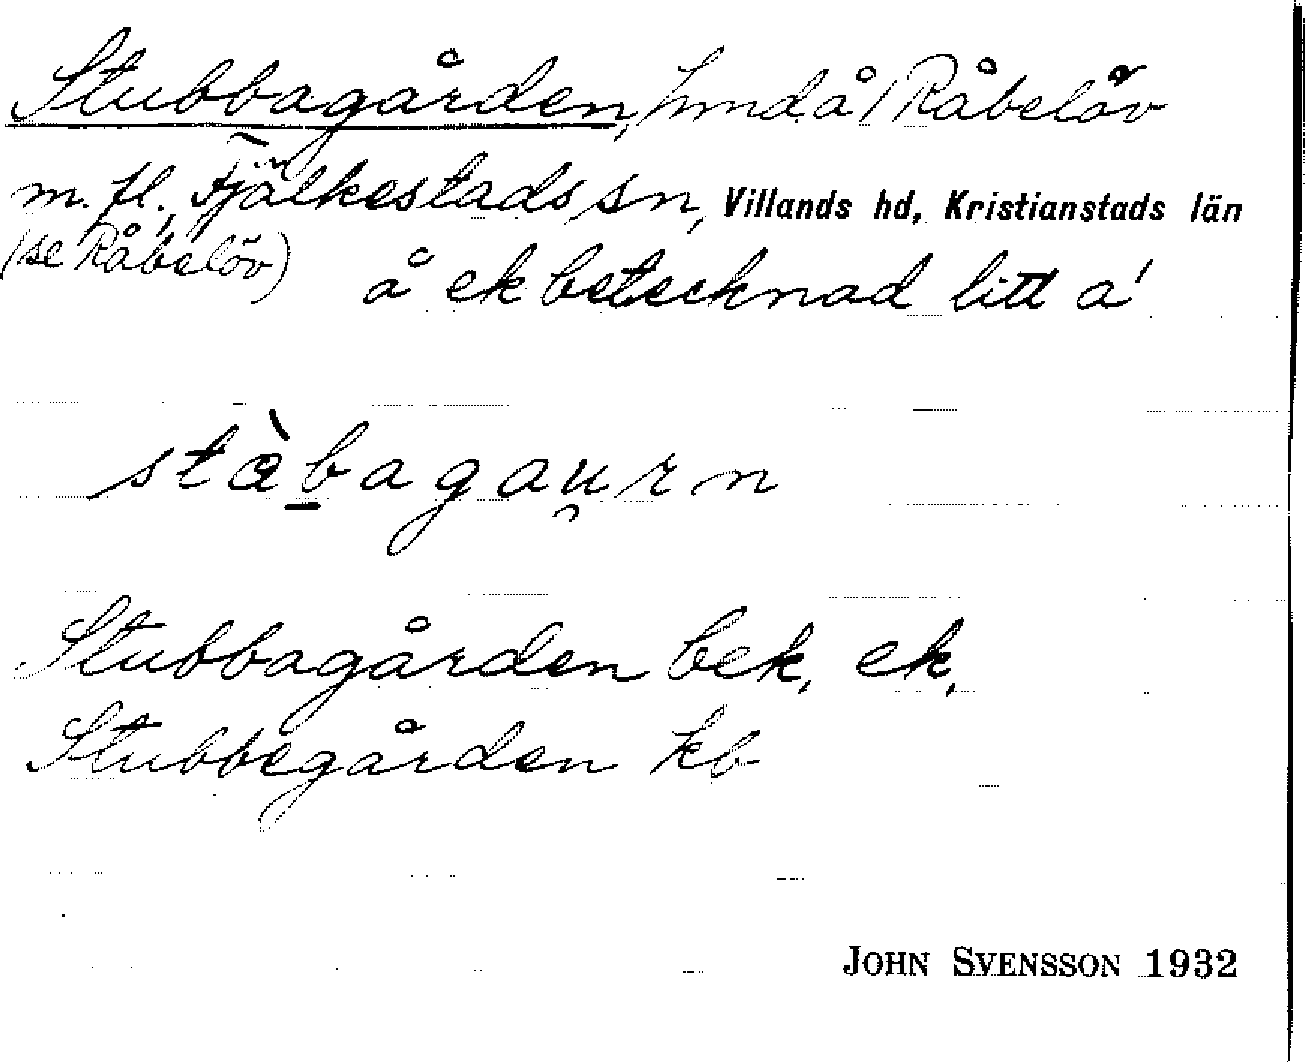 Stubbagården, hmd å Råbelöv
m. fl., Fjälkestads sn, Villands hd, Kristianstads län
(se Råbelöv) å ek betecknad litt a'
stàbagau̯rn
Stubbagården bek, ek,
Stubbegården kb
JOHN SVENSSON 1932